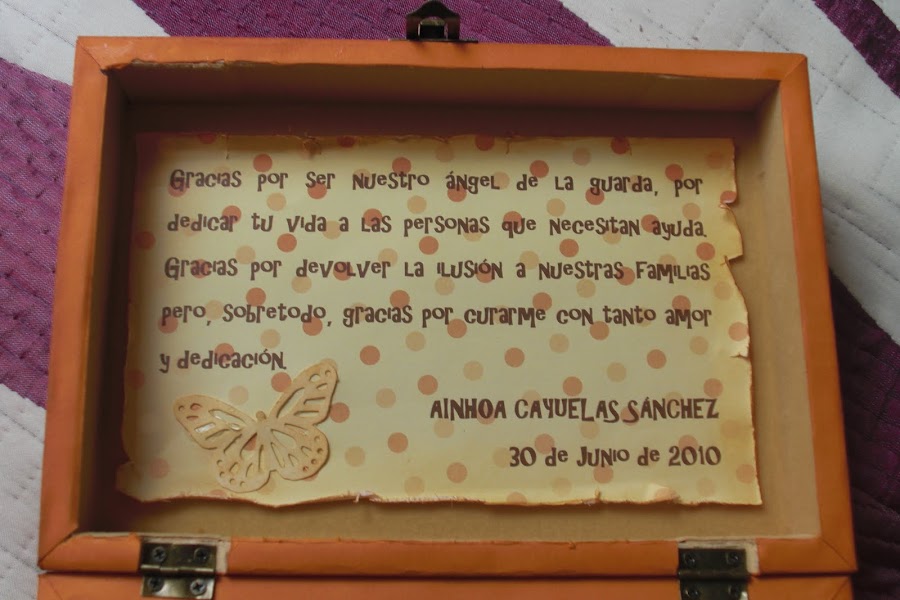 Gracias por ser nuestro ángel de la guarda, por
dedicar tu vida a las personas que necesitan ayuda.
Gracias por devolver la ilusión a nuestras familias
pero, sobretodo, gracias por curarme con tanto amor
y dedicación.
AINHOA CAYUELAS SÁNCHEZ
30 de Junio de 2010